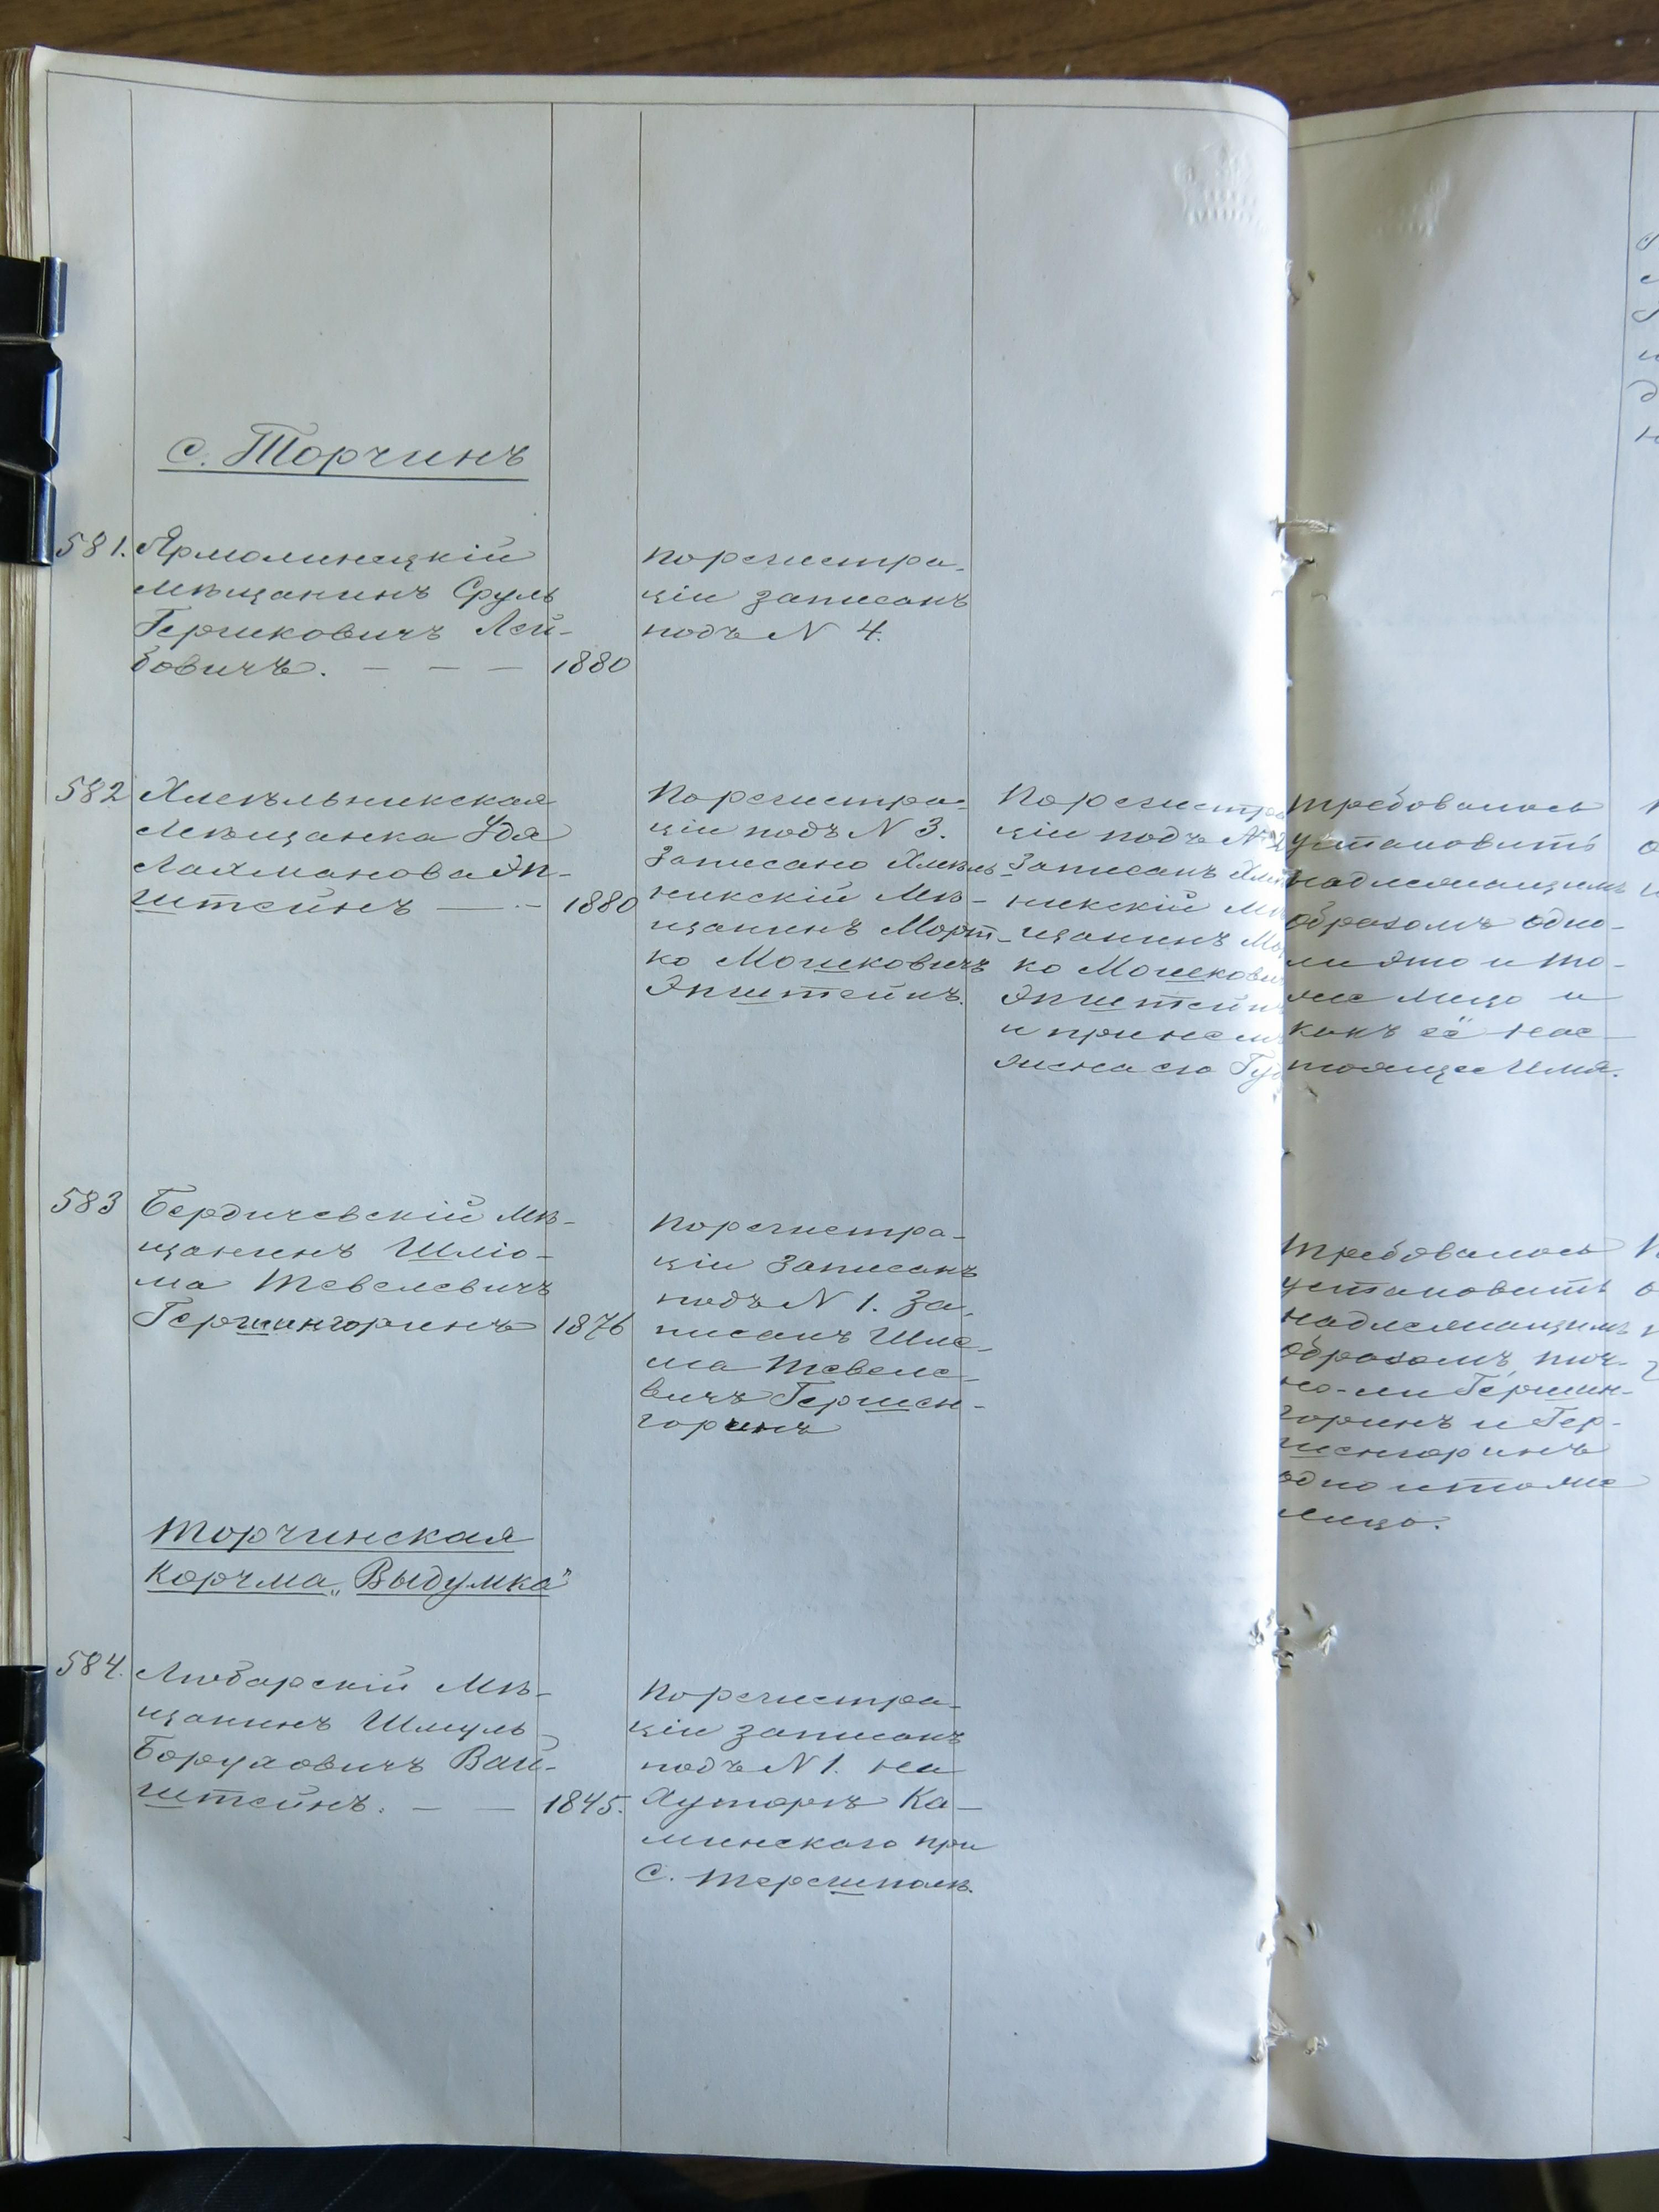 с. Торчинъ
581. Ярмолинецкій
мѣщанинъ Сруль
Гершковичъ Лей-
бовичъ. — — — 1880
По регистра-
ціи записанъ
подъ N 4.
582 Хмѣльникская
Мѣщанка Удя
Лахманова Эп-
штейнъ — - 1880
По регистра-
ціи подъ N 3.
Записано Хмѣль-
никскій Мѣ-
щанинъ Морт-
ко Мошковичъ
Эпштейнъ.
По регистра
ціи подъ N 2
Записанъ
никскій
щанинъ
ко
Эпштейн
и при немъ
жена его
требовалось
установить
надлежащимъ
образомъ одно-
ли это и то-
же лицо и
какъ её нас-
тоящее Имя.
583 Бердичевскій Мѣ-
щанинъ Шліо-
ма Тевелевичъ
Гершингоринъ 1876
По регистра-
ціи записанъ
подъ N 1. За-
писанъ Шле-
ма Тевеле-
вичъ Гершен-
горинъ
требовалось
установить
надлежащимъ
образомъ, точ-
но-ли Гершин-
горинъ и Гер-
шенгоринъ
одно и тоже
лицо.
Торчинская
Корчма „Выдумка"
584. Любарскій Мѣ-
щанинъ Шмуль
Боруховичъ Вай-
штейнъ. — — 1845.
По регистра-
ціи записанъ
подъ N 1. на
Хуторѣ Ка-
минскаго при
С. Терешполѣ.